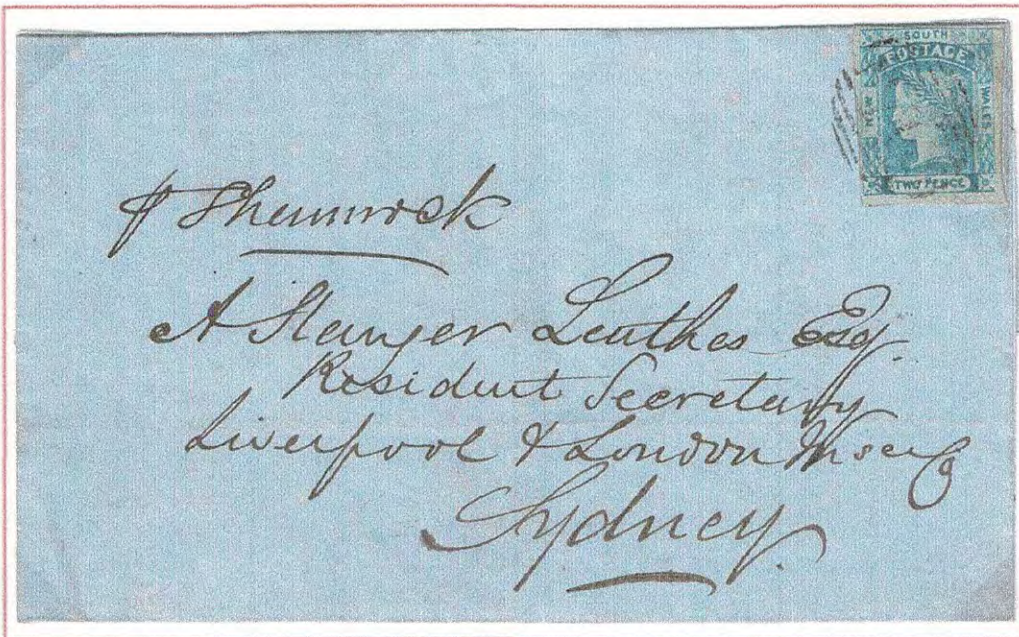 SOUTH
POSTAGE
NEW
WALES
TWO PENCE
p Shamrock
A Stanger Leathes Esq.
Resident Secretary
Liverpool & London Insce Co
Sydney